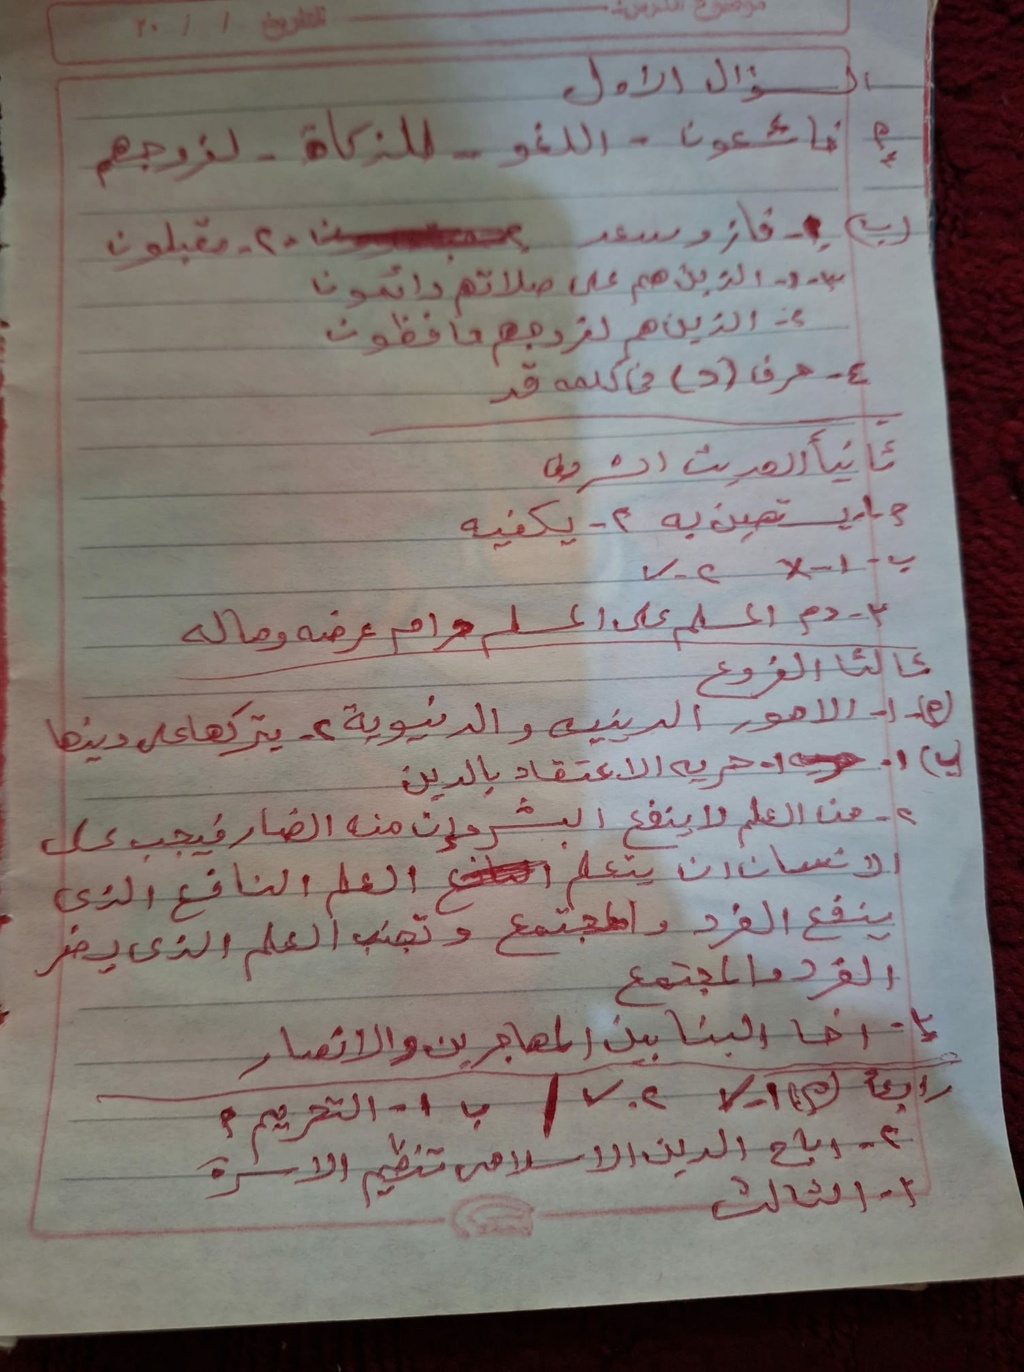 التاريخ / / ٢٠
السؤال الاول
خاشعون - اللغو - للزكاة - لفروجهم
(ب) ١- فاز وسعد ٢- مقبلون
٣-١- الذين هم على صلاتهم دائمون
٢- الذين هم لفروجهم حافظون
٤- حرف (د) في كلمه قد
ثانياً الحديث الشريف
١- يستهين به ٢- يكفيه
ب- ١- x ٢- ✓
٣- دم المسلم على المسلم حرام عرضه وماله
ثالثا الفروع
(أ) ١- الامور الدينيه والدنيوية ٢- يتركها على دينها
ب) ١- ١- حريه الاعتقاد بالدين
٢- منا العلم لا ينفع البشر وإن منه الضار فيجب على
الانسان ان يتعلم العلم النافع الذى
ينفع الفرد والمجتمع وتجنب العلم الذى يضر
الفرد والمجتمع
٣- اخا البنا بين المهاجرين والانصار
رابعا (أ) ١- ✓ ٢- ✓ / ب ١- التحريم
٢- اباح الدين الاسلامى تنظيم الاسرة
٣- الثالث